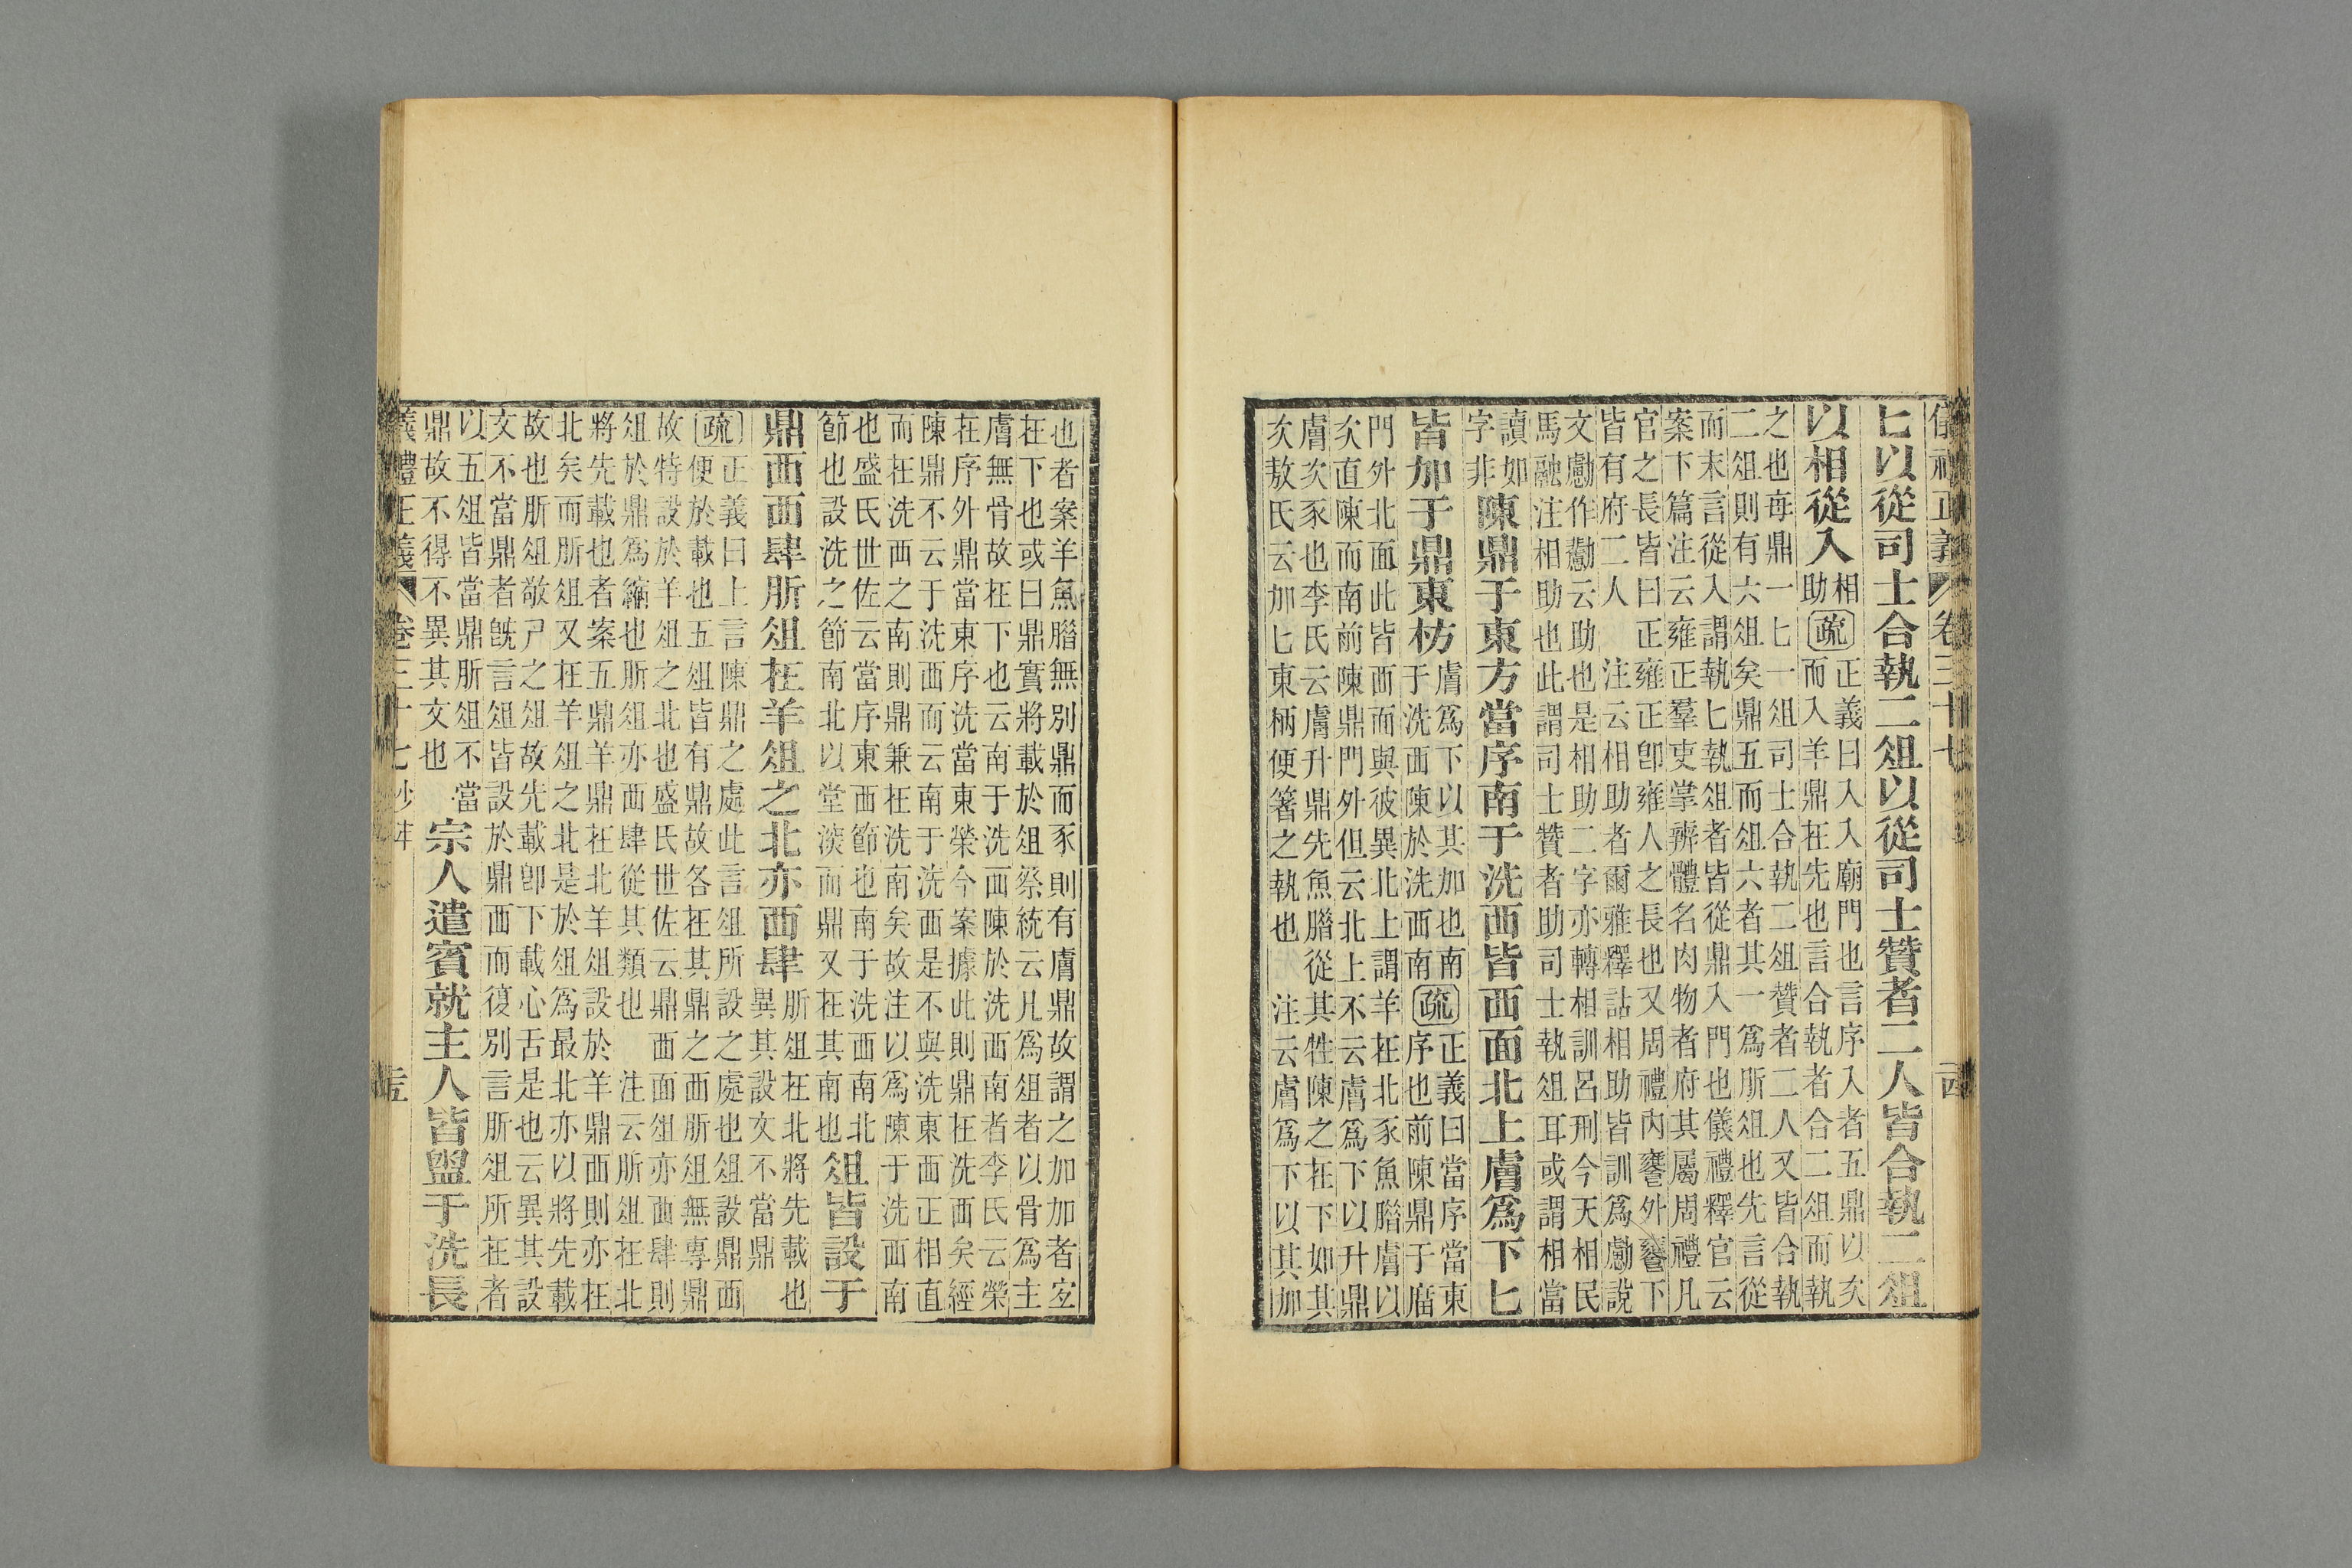 儀禮正義 卷三十七
匕以從司士合執二俎以從司士贊者二人皆合執二俎
以相從入
相
助
疏
正義曰入入廟門也言序入者五鼎以次
而入羊鼎在先也言合執者合二俎而執
之也每鼎一匕一俎司士合執二俎贊者二人又皆合執
二俎則有六俎矣鼎五而俎六者其一爲肵俎也先言從
而末言從入謂執匕執俎者皆從鼎入門也儀禮釋官云
案下篇注云雍正羣吏掌辨體名肉物者府其屬周禮凡
官之長皆曰正雍正卽雍人之長也又周禮內饔外饔下
皆有府二人 注云相助者爾雅釋詁相助皆訓爲勴說
文勴作勸云助也是相助二字亦轉相訓呂刑今天相民
馬融注相助也此謂司士贊者助司士執俎耳或謂相當
讀如
字非
陳鼎于東方當序南于洗西皆西面北上膚爲下匕
皆加于鼎東枋
膚爲下以其加也南
于洗西陳於洗西南
疏
正義曰當序當東
序也前陳鼎于廟
門外北面此皆西面而與彼異北上謂羊在北豕魚腊膚以
次直陳而南前陳鼎門外但云北上不云膚爲下以升鼎
膚次豕也李氏云膚升鼎先魚腊從其牲陳之在下如其
次敖氏云加匕東柄便箸之執也 注云膚爲下以其加
也者案羊魚腊無別鼎而豕則有膚鼎故謂之加加者宜
在下也或曰鼎實將載於俎祭統云凡爲俎者以骨爲主
膚無骨故在下也云南于洗西陳於洗西南者李氏云榮
在序外鼎當東序洗當東榮今案據此則鼎在洗西矣經
陳鼎不云于洗西而云南于洗西是不與洗東西正相直
而在洗西之南則鼎兼在洗南矣故注以爲陳于洗西南
也盛氏世佐云當序東西節也南于洗西南北
節也設洗之節南北以堂湥而鼎又在其南也
俎皆設于
鼎西西肆肵俎在羊俎之北亦西肆
肵俎在北將先載也
異其設文不當鼎
疏
正義曰上言陳鼎之處此言俎所設之處也俎設鼎西
便於載也五俎皆有鼎故各在其鼎之西肵俎無專鼎
故特設於羊俎之北也盛氏世佐云鼎西面俎亦西肆則
俎於鼎爲縮也肵俎亦西肆從其類也 注云肵俎在北
將先載也者案五鼎羊鼎在北羊俎設於羊鼎西則亦在
北矣而肵俎又在羊俎之北是於俎爲最北亦以將先載
故也肵俎敬尸之俎故先載卽下載心舌是也云異其設
文不當鼎者旣言俎皆設於鼎西而復別言肵俎所在者
以五俎皆當鼎肵俎不當
鼎故不得不異其文也
宗人遣賓就主人皆盥于洗長
儀禮正義 卷三十七 少牢